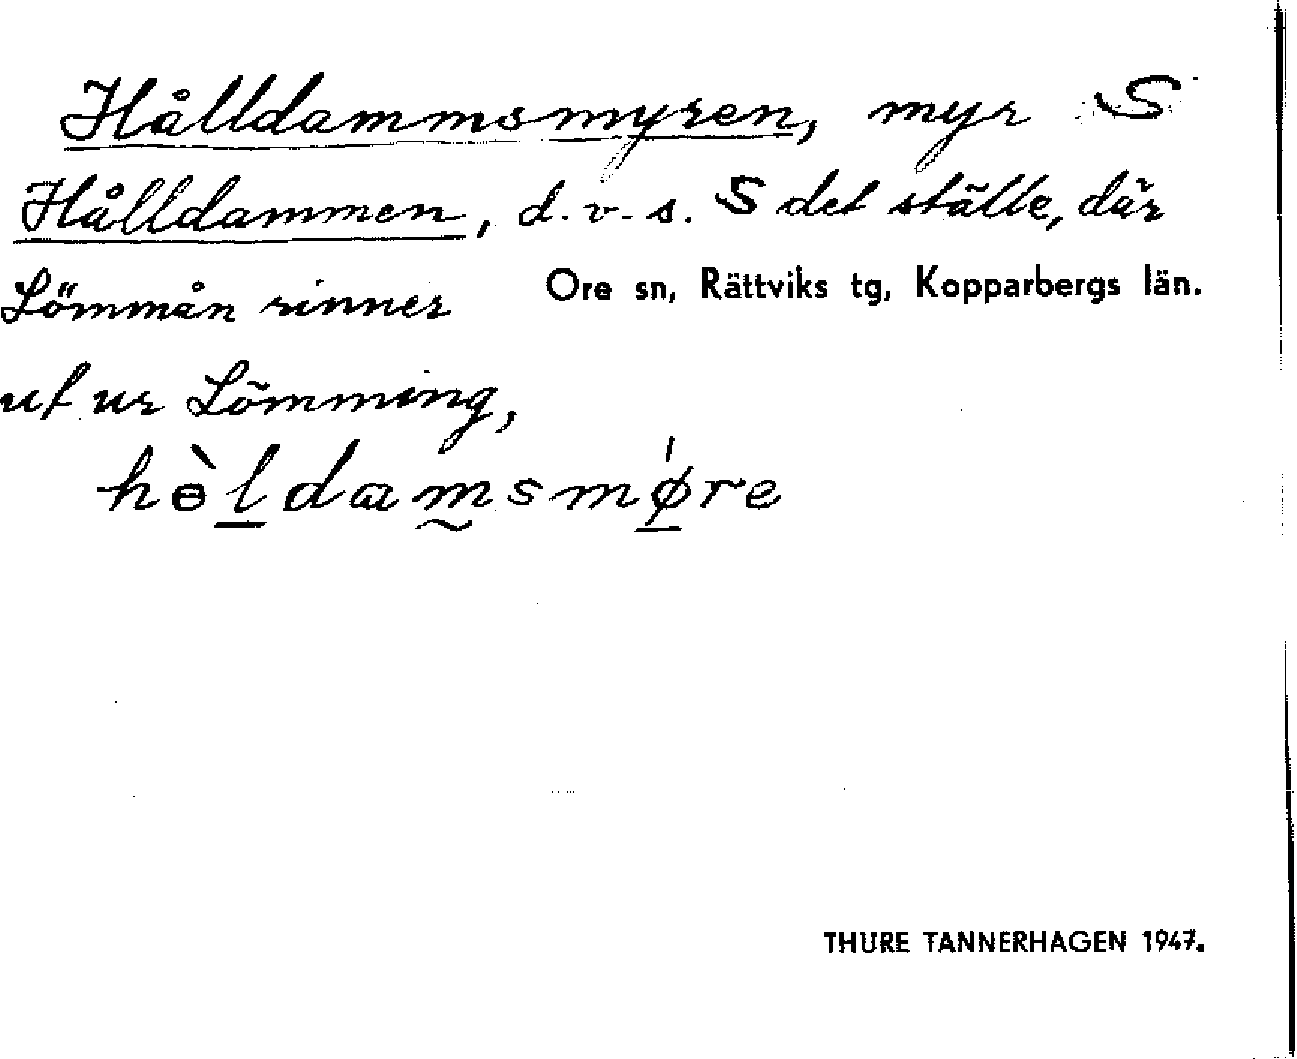 Hålldammsmyren, myr S
Hålldammen, d.v.s. S det ställe, där
Lömmån rinner
Ore sn, Rättviks tg, Kopparbergs län.
ut ur Lömming,
hɵ̀ldamsmǿre
THURE TANNERHAGEN 1947.